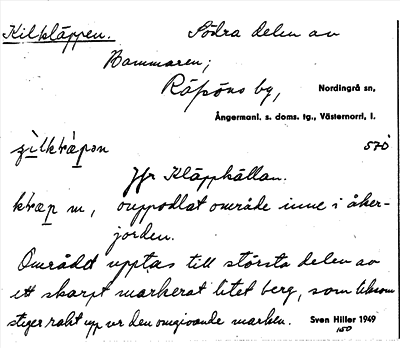 Kilkläppen. Södra delen av
Hammaren;
Räfsöns by, Nordingrå sn,
Ångermanl. s. doms. tg., Västernorrl. l.
570
Jfr Kläppkällan.
m, ouppodlat område inne i åker-
jorden.
Området upptas till största delen av
ett skarpt markerat litet berg, som liksom
stiger rakt upp ur den omgivande marken. Sven Hiller 1949
150